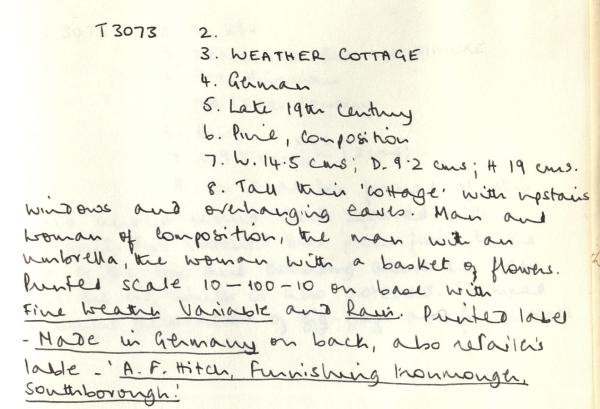 T3073 2.
3. WEATHER COTTAGE
4. German
5. Late 19th Century
6. Pine, Composition
7. W. 14.5 cms; D. 9.2 cms; H 19 cms.
8. Tall thin 'cottage' with upstairs
windows and overhanging eaves. Man and
woman of composition, the man with an
umbrella, the woman with a basket of flowers.
Printed scale 10-100-10 on base with
Fine Weather Variable and Rain. Printed label
- Made in Germany on back, also retailer's
lable - 'A. F. Hitch, Furnishing Ironmonger,
Southborough.'